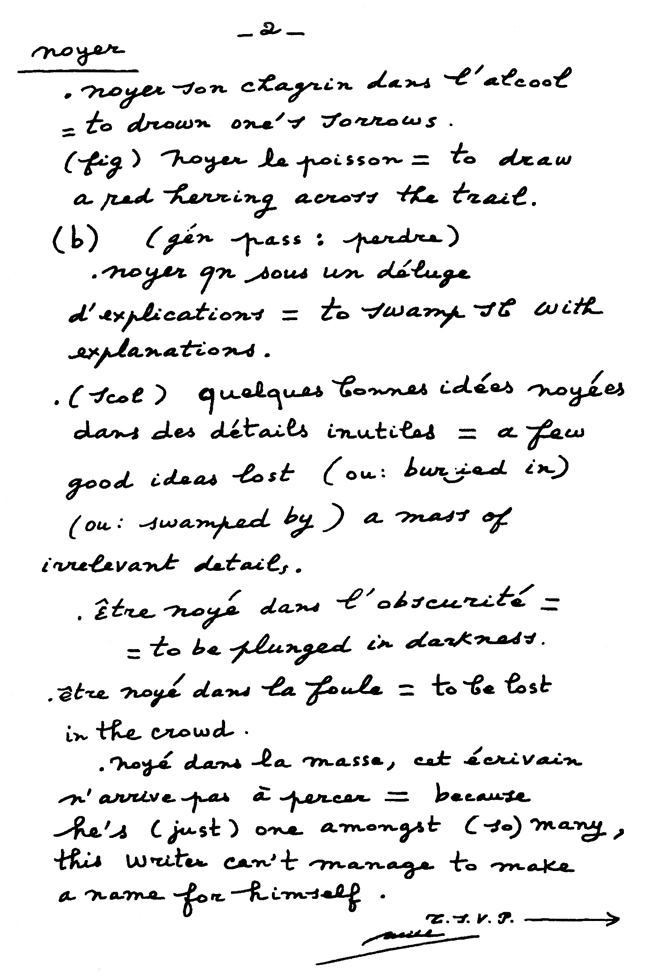 _ 2 _
noyer
. noyer son chagrin dans l'alcool
= to drown one's sorrows.
(fig) noyer le poisson = to draw
a red herring across the trail.
(b) (gén pass : perdre)
. noyer qn sous un déluge
d'explications = to swamp sb with
explanations.
. (Scol) quelques bonnes idées noyées
dans des détails inutiles = a few
good ideas lost (ou: buried in)
(ou: swamped by) a mass of
irrelevant details.
. Être noyé dans l'obscurité =
= to be plunged in darkness.
. être noyé dans la foule = to be lost
in the crowd.
. noyé dans la masse, cet écrivain
n'arrive pas à percer = because
he's (just) one amongst (so) many,
this writer can't manage to make
a name for himself.
T.S.V.P. →